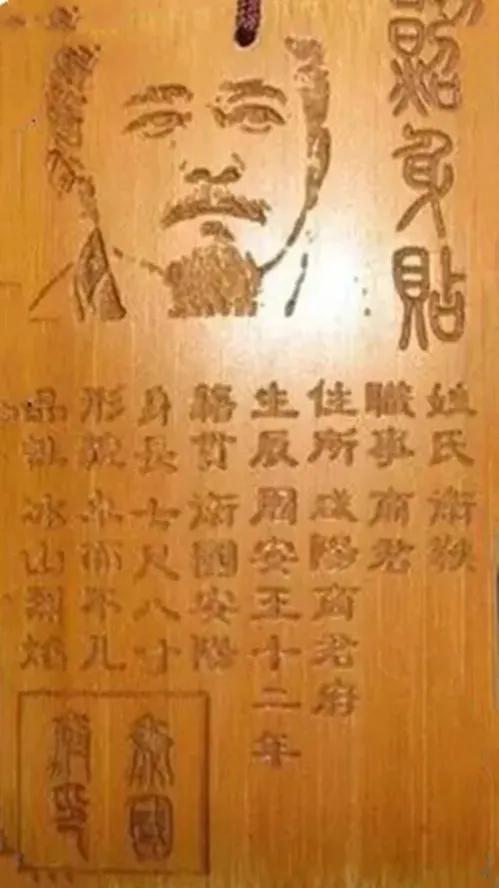 照身貼
姓氏 衛鞅
職事 商君
住所 咸陽商君府
生辰 周安王十二年
籍貫 衛國安陽
身長 七尺八寸
形貌 不凡
品性 冰山烈焰
秦國
印